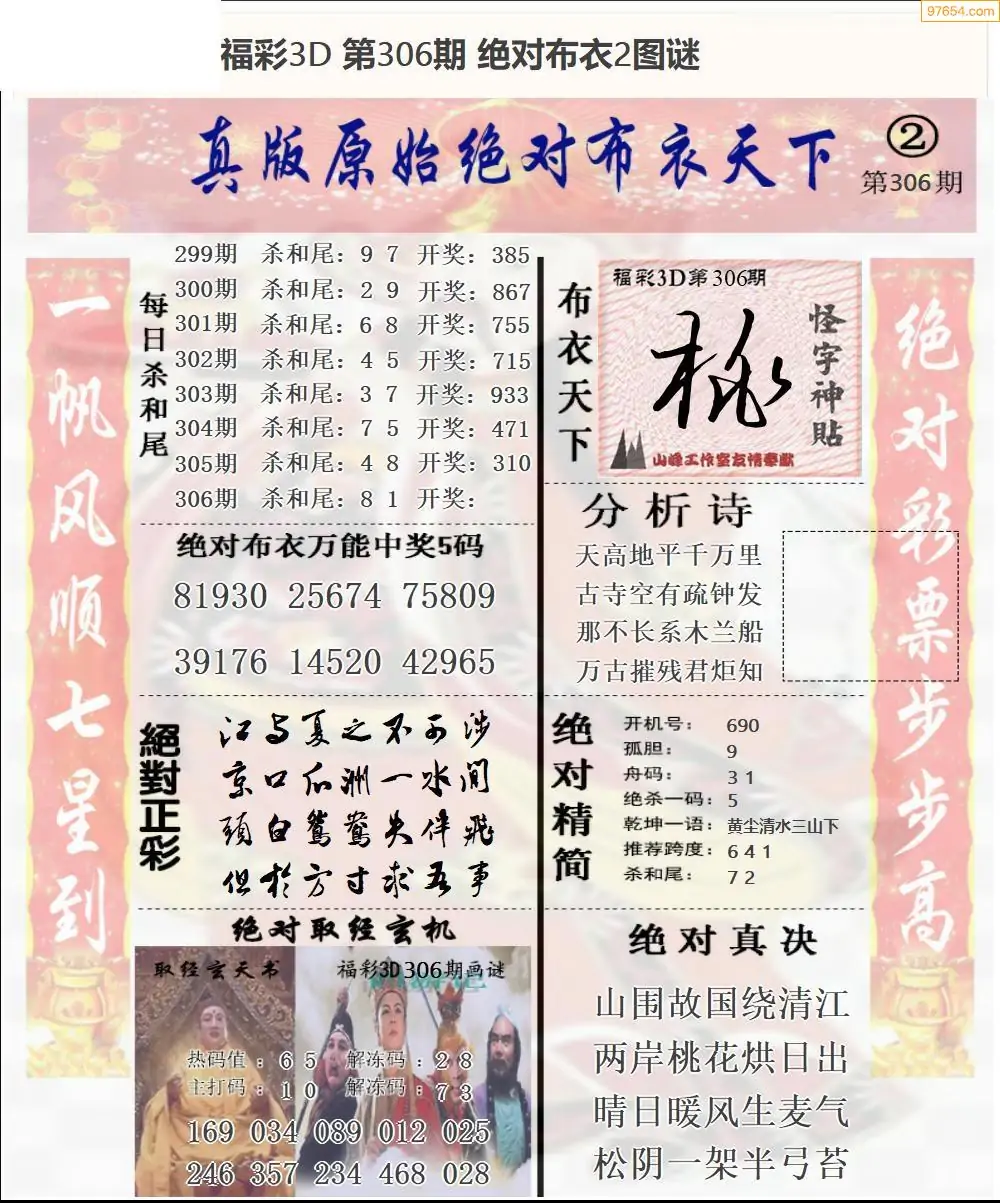 97654.com
福彩3D 第306期 绝对布衣2图谜
真版原始绝对布衣天下
②
第306期
一帆风顺七星到
每日杀和尾
299期 杀和尾：9 7 开奖：385
300期 杀和尾：2 9 开奖：867
301期 杀和尾：6 8 开奖：755
302期 杀和尾：4 5 开奖：715
303期 杀和尾：3 7 开奖：933
304期 杀和尾：7 5 开奖：471
305期 杀和尾：4 8 开奖：310
306期 杀和尾：8 1 开奖：
绝对布衣万能中奖5码
81930 25674 75809
39176 14520 42965
絕對正彩
江与夏之不可涉
京口瓜洲一水间
頭白鴛鴦失伴飛
但於方寸求吾事
绝对取经玄机
取经玄天书
福彩3D306期画谜
热码值：6 5 解冻码：2 8
主打码：1 0 解冻码：7 3
169 034 089 012 025
246 357 234 468 028
布衣天下
福彩3D第306期
桃
怪字神貼
山峰工作室友情奉献
分析诗
天高地平千万里
古寺空有疏钟发
那不长系木兰船
万古摧残君炬知
绝对精简
开机号：690
孤胆：9
舟码：3 1
绝杀一码：5
乾坤一语：黄尘清水三山下
推荐跨度：6 4 1
杀和尾：7 2
绝对真决
山围故国绕清江
两岸桃花烘日出
晴日暖风生麦气
松阴一架半弓苔
绝对彩票步步高